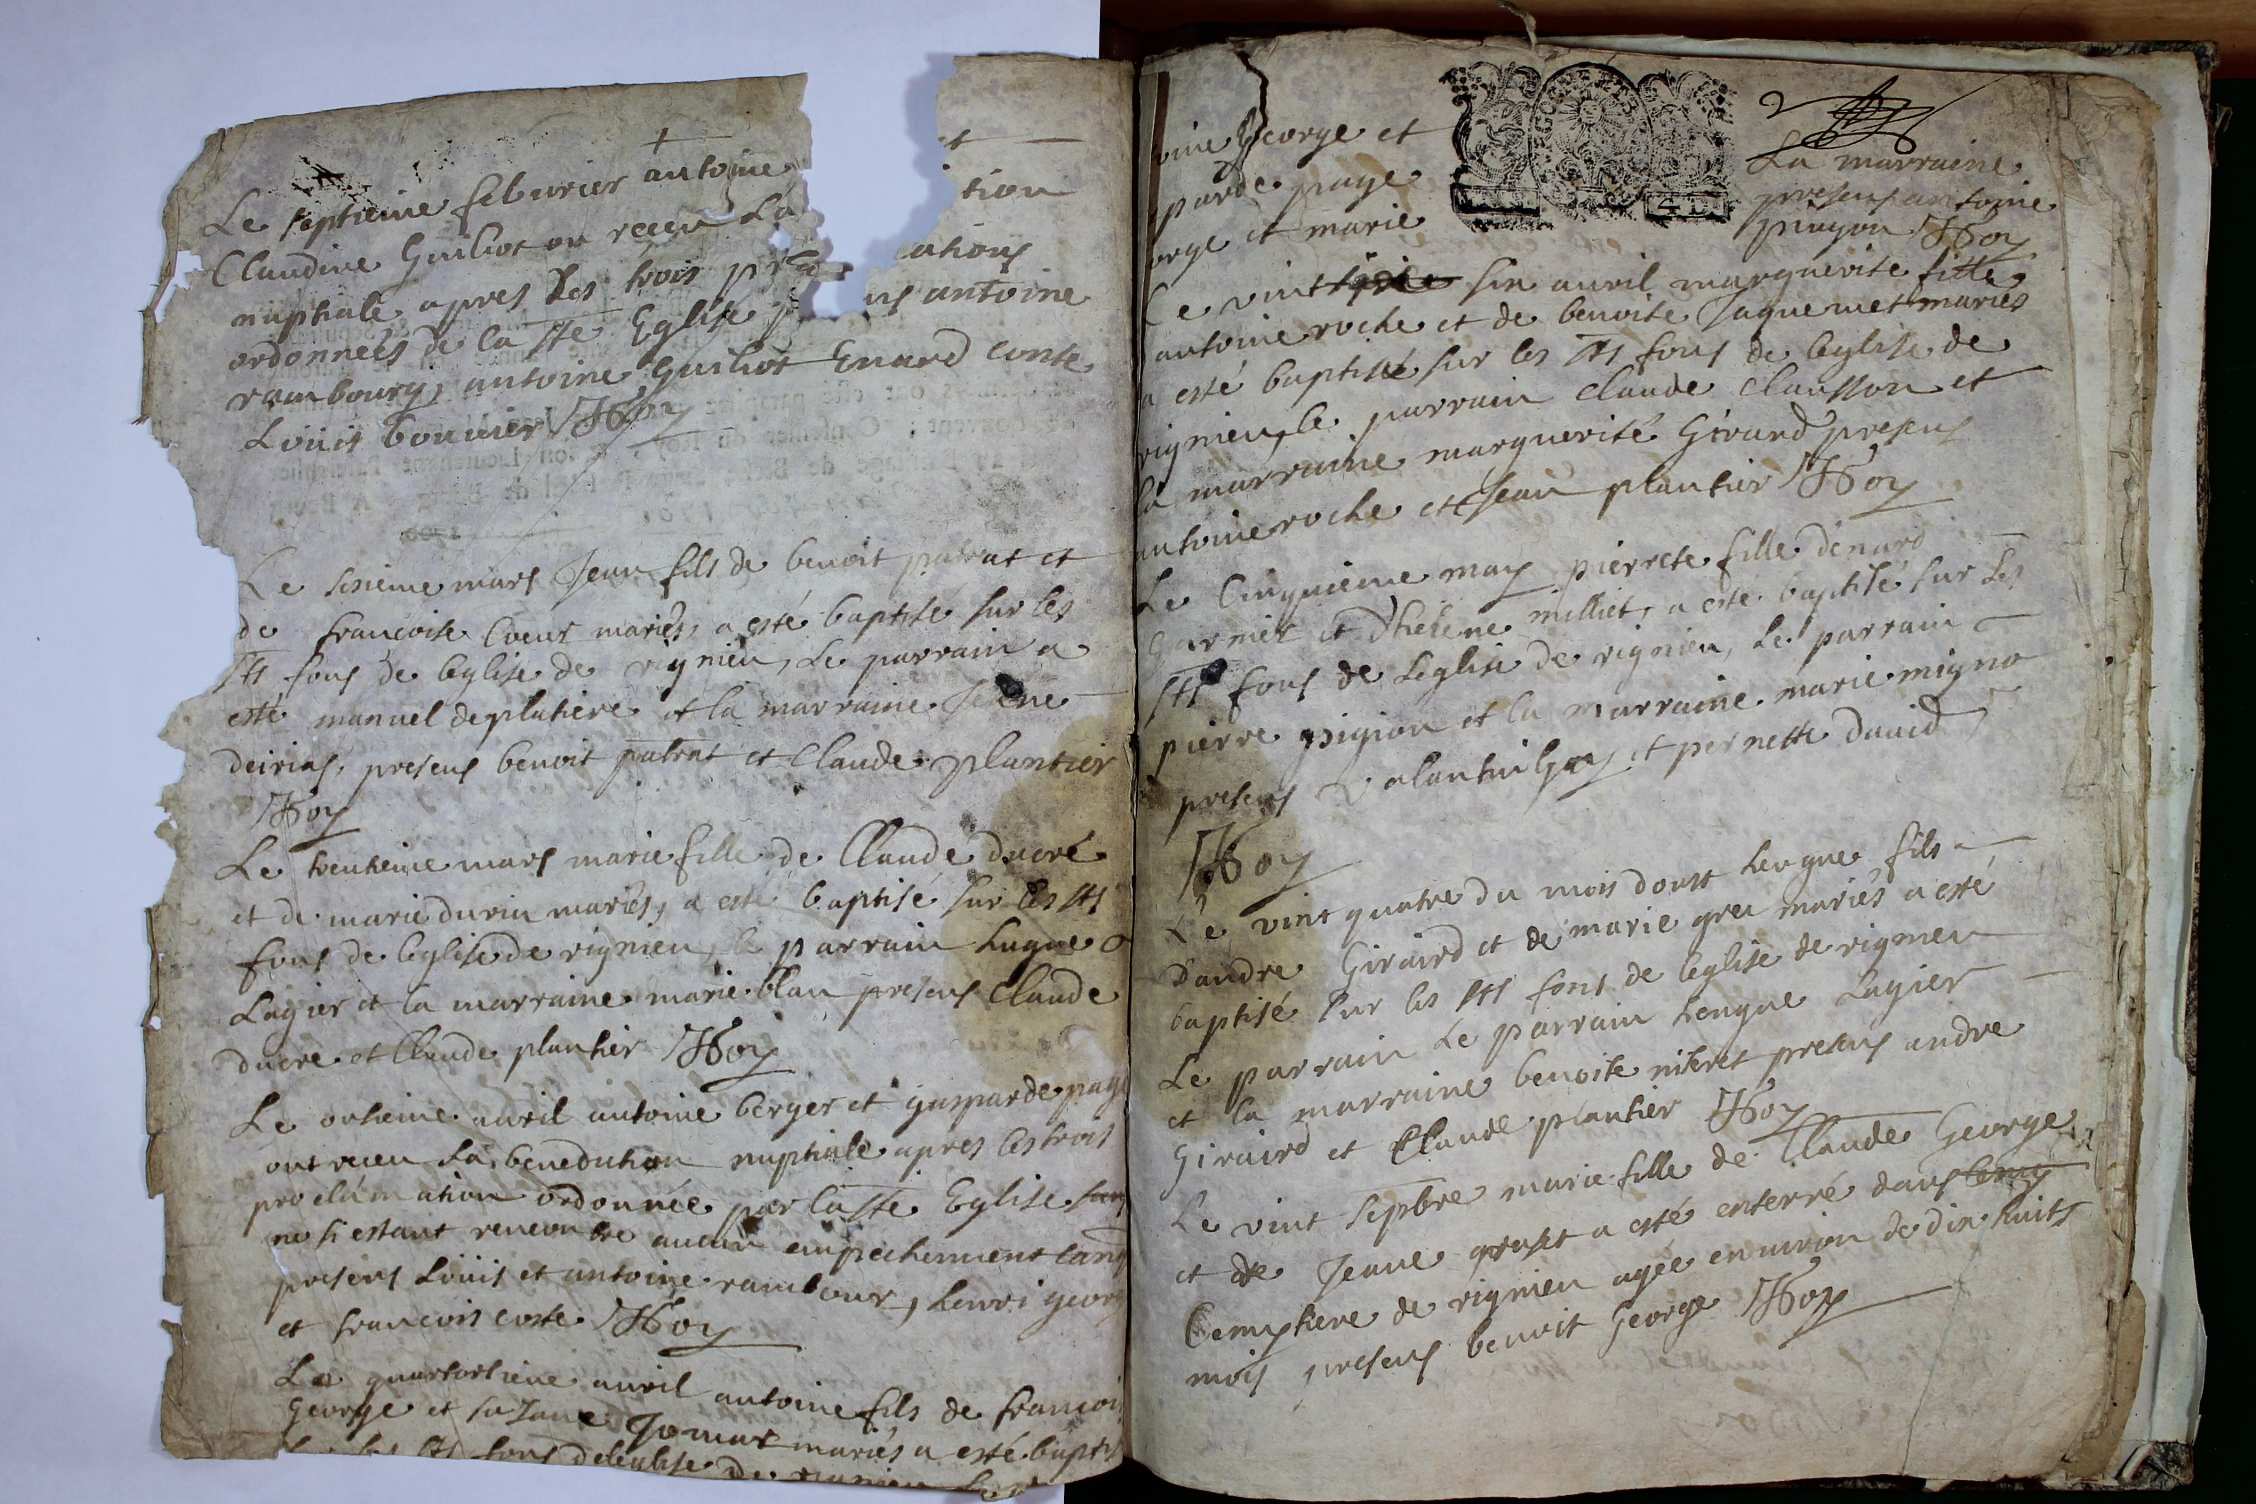 Le septieme feburier antoine
Claudine Guiliot on receu La tion
nuptiale apres les trois ations
ordonnees de la ste Eglise ns antoine
rambourg, antoine Guiliot Enard conte
Louis bouvier Roy
Le sixieme mars Jean fils de benoit patrat et
de francoise Coeur mariés, a esté baptisé sur les
sts fons de leglise de rignieu, Le parrain a
esté manuel deplatiere et la marraine
deirias, presens benoit patrat et Claude plantier
Roy
Le trentieme mars marie fille de Claude ducré
et de marie durin mariés, a esté baptisé sur les sts
fons de leglise de rignieu, le parrain hugue
Lagier et la marraine marie blan presens Claude
ducre et Claude plantier Roy
Le ontieme auril antoine berger et gasparde page
ont receu La benediction nuptiale apres les trois
proclamation ordonnée par la ste Eglise
ne si estant rencontre aucun empechement
presens Louis et antoine rambour, henri georg
et francois coste Roy
Le quartortieme auril antoine fils de francoi
George et suzane Jomar mariés a esté baptis
sts fons de leglise de rignieu
oine George et
sparde page
orge et marie
La marraine
presens antoine
pingon Roy
Le vint six auril marguerite fille
antoine roche et de benoite Jaquemet mariés
a esté baptisé sur les sts fons de leglise de
rignieu, le parrain Claude Clausson et
la marraine marguerite Girard presens
antoine roche et Jean plantier Roy
Le Cinquieme may pierrete fille denard
Garnier et dhelene milliet, a esté baptisé sur Les
sts fons de Leglise de rignieu, Le parrain
pierre pigion et la marraine marie migno
presens Valantin Guy et pernette david
Roy
Le vint quatre du mois doust heugue fils
dandre Giraird et de marie greu mariés a esté
baptisé sur les sts fons de leglise de rignieu
Le parrain Le parrain heugue Lagier
et la marraine benoite presens andre
Giraird et Claude plantier Roy
Le vint sepbre marie fille de Claude George
et de Jeane a esté enterré dans
Cemytiere de rignieu agée enuiron de dix huits
mois, presens benoit George Roy